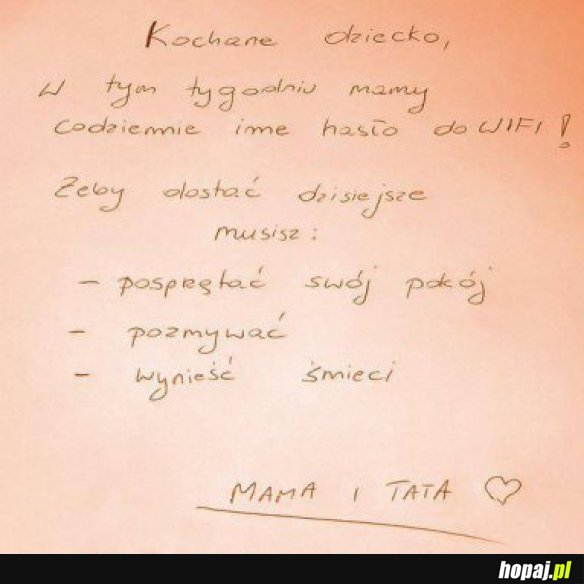 Kochane dziecko,
W tym tygodniu mamy
codziennie inne hasło do WIFI!
Żeby dostać dzisiejsze
musisz:
- posprzątać swój pokój
- pozmywać
- wynieść śmieci
MAMA I TATA ♡
hopaj.pl